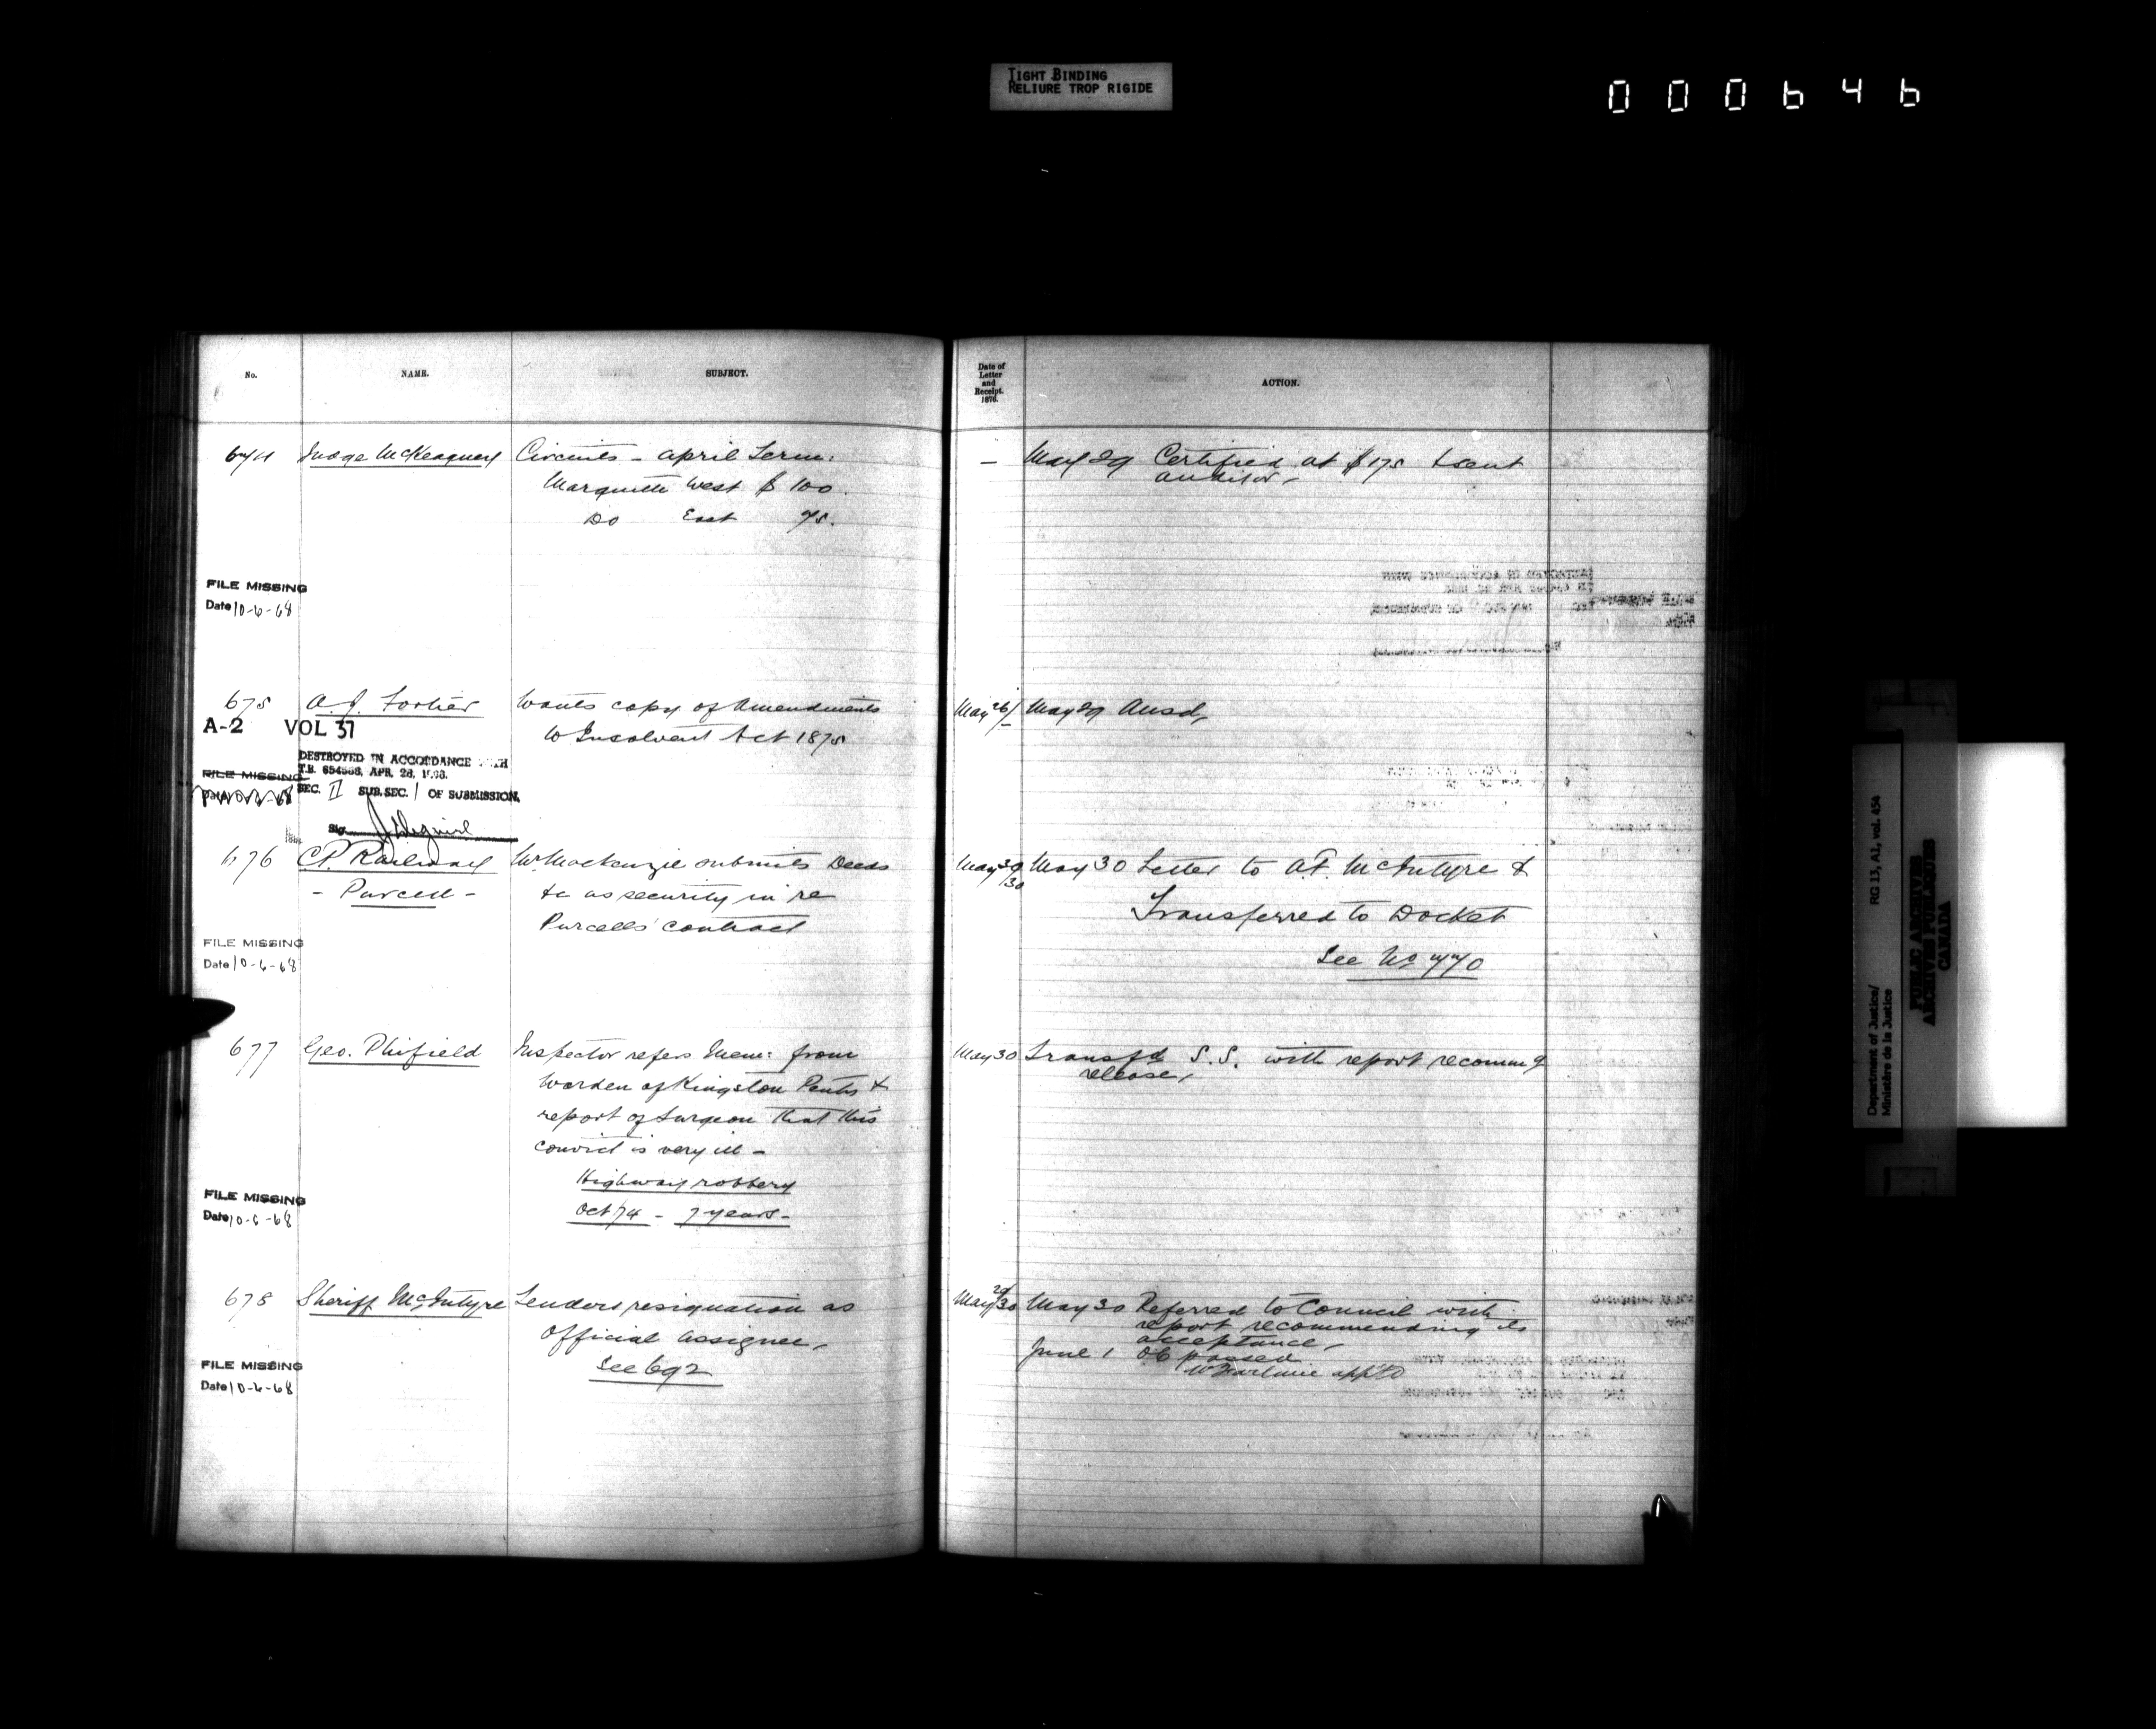 TIGHT BINDING
RELIURE TROP RIGIDE
000646
No. NAME. SUBJECT.
674 Judge McKeagney Circuits - April Term:
Marquette West $100.
Do East 75.
FILE MISSING
Date 10-6-68
675 A. J. Fortier Wants copy of Amendments
to Insolvent Act 1875
A-2 VOL 37
DESTROYED IN ACCORDANCE WITH
T.B. 654568, APR. 28, 1966.
SEC. II SUB.SEC. 1 OF SUBMISSION.
FILE MISSING
Sig.
676 C.P. Railway Mr. Mackenzie submits Deeds
- Purcell - &c as security in re
Purcells' contract
FILE MISSING
Date 10-6-68
677 Geo. Phifield Inspector refers Mem: from
Warden of Kingston Penty &
report of Surgeon that this
convict is very ill -
Highway robbery
Oct 74 - 7 years -
FILE MISSING
Date 10-6-68
678 Sheriff McIntyre Tenders resignation as
Official Assignee,
See 692
FILE MISSING
Date 10-6-68
Date of
Letter
and
Receipt.
1876.
ACTION.
- May 29 Certified at $175 & sent
auditor,
May 26/- May 29 Ansd,
May 29/30 May 30 Letter to A.F. McIntyre &
Transferred to Docket
See No 770
May 30 Transfd S.S. with report recommg
release,
May 29/30 May 30 Referred to Council with
report recommending its
acceptance,
June 1 OC passed
app'td
Department of Justice/
Ministère de la Justice
RG 13, A1, vol. 454
PUBLIC ARCHIVES
ARCHIVES PUBLIQUES
CANADA